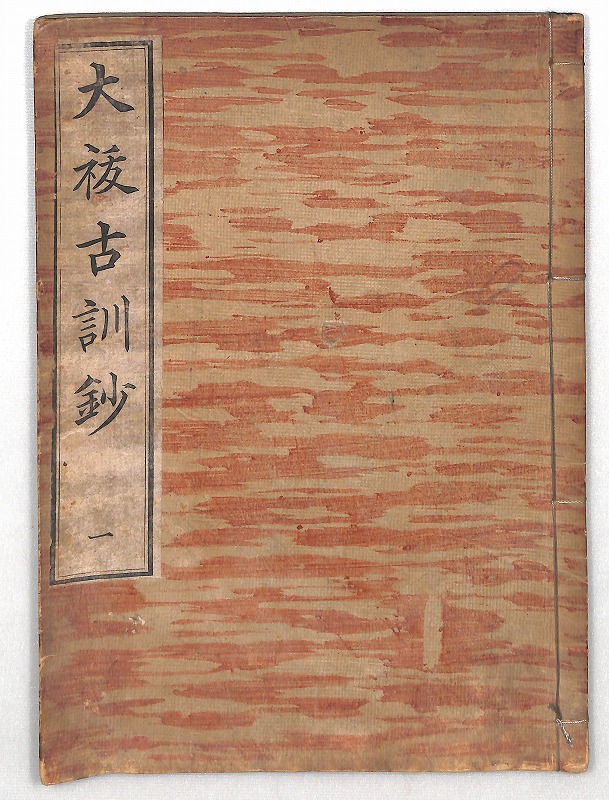 大祓古訓鈔 一